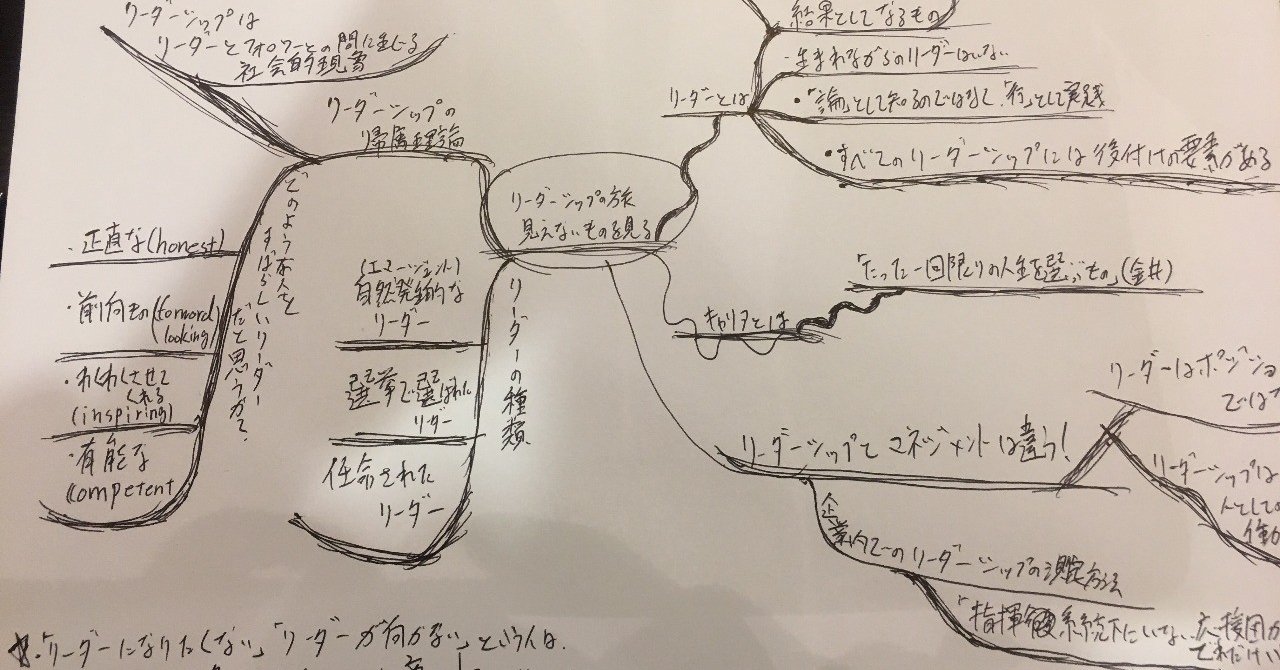 リーダーシップは
リーダーとフォロワーとの間に生じる
社会的現象
リーダーシップの
帰属理論
どのような人を
すばらしいリーダー
だと思うか?
・正直な(honest)
・前向きの(forword
looking)
・わくわくさせて
くれる
(inspiring)
・有能な
competent
リーダーシップの旅
見えないものを見る
リーダーの種類
(エマージェント)
自然発生的な
リーダー
選挙で選ばれた
リーダー
任命された
リーダー
リーダーとは
結果としてなるもの
・生まれながらのリーダーはいない
・「論」として知るのではなく、「行」として実践
・すべてのリーダーシップには後付けの要素がある
キャリアとは
「たった一回限りの人生を選ぶもの」(金井)
リーダーシップとマネジメントは違う!
リーダーはポジショ
では
リーダーシップは
人としての
企業内でのリーダーシップの測定方法
「指揮系統下にいない応援団が
どれだけい
☆・「リーダーになりたくない」「リーダーが向かない」という人は、